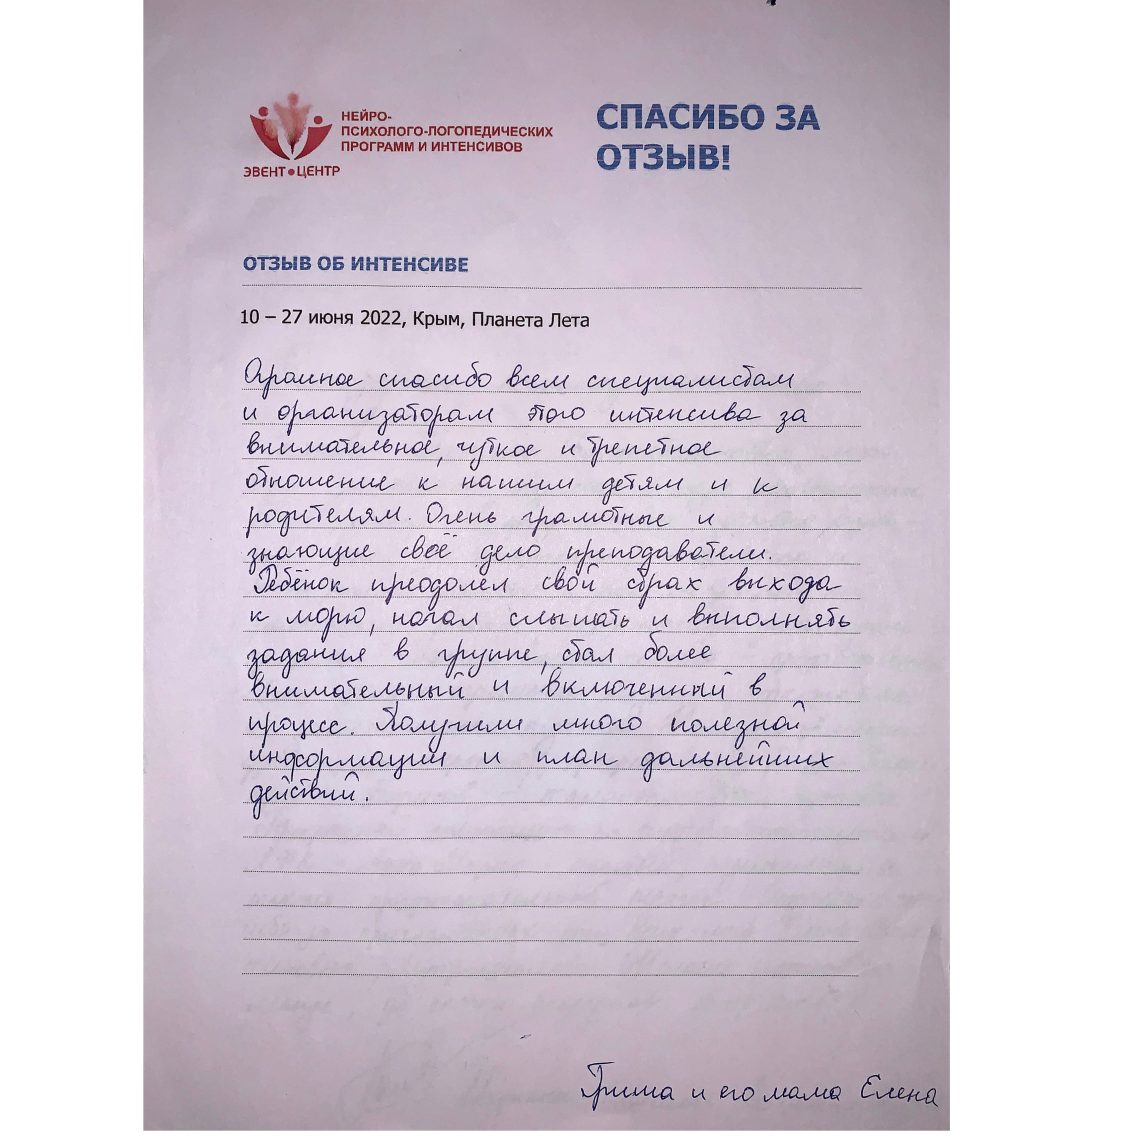 НЕЙРО-
ПСИХОЛОГО-ЛОГОПЕДИЧЕСКИХ
ПРОГРАММ И ИНТЕНСИВОВ
ЭВЕНТ•ЦЕНТР
СПАСИБО ЗА
ОТЗЫВ!
ОТЗЫВ ОБ ИНТЕНСИВЕ
10 – 27 июня 2022, Крым, Планета Лета
Огромное спасибо всем специалистам
и организаторам этого интенсива за
внимательное, чуткое и трепетное
отношение к нашим детям и к
родителям. Очень грамотные и
знающие своё дело преподаватели.
Ребёнок преодолел свой страх выхода
к морю, начал слышать и выполнять
задания в группе, стал более
внимательный и включенный в
процесс. Получили много полезной
информации и план дальнейших
действий.
Гриша и его мама Елена